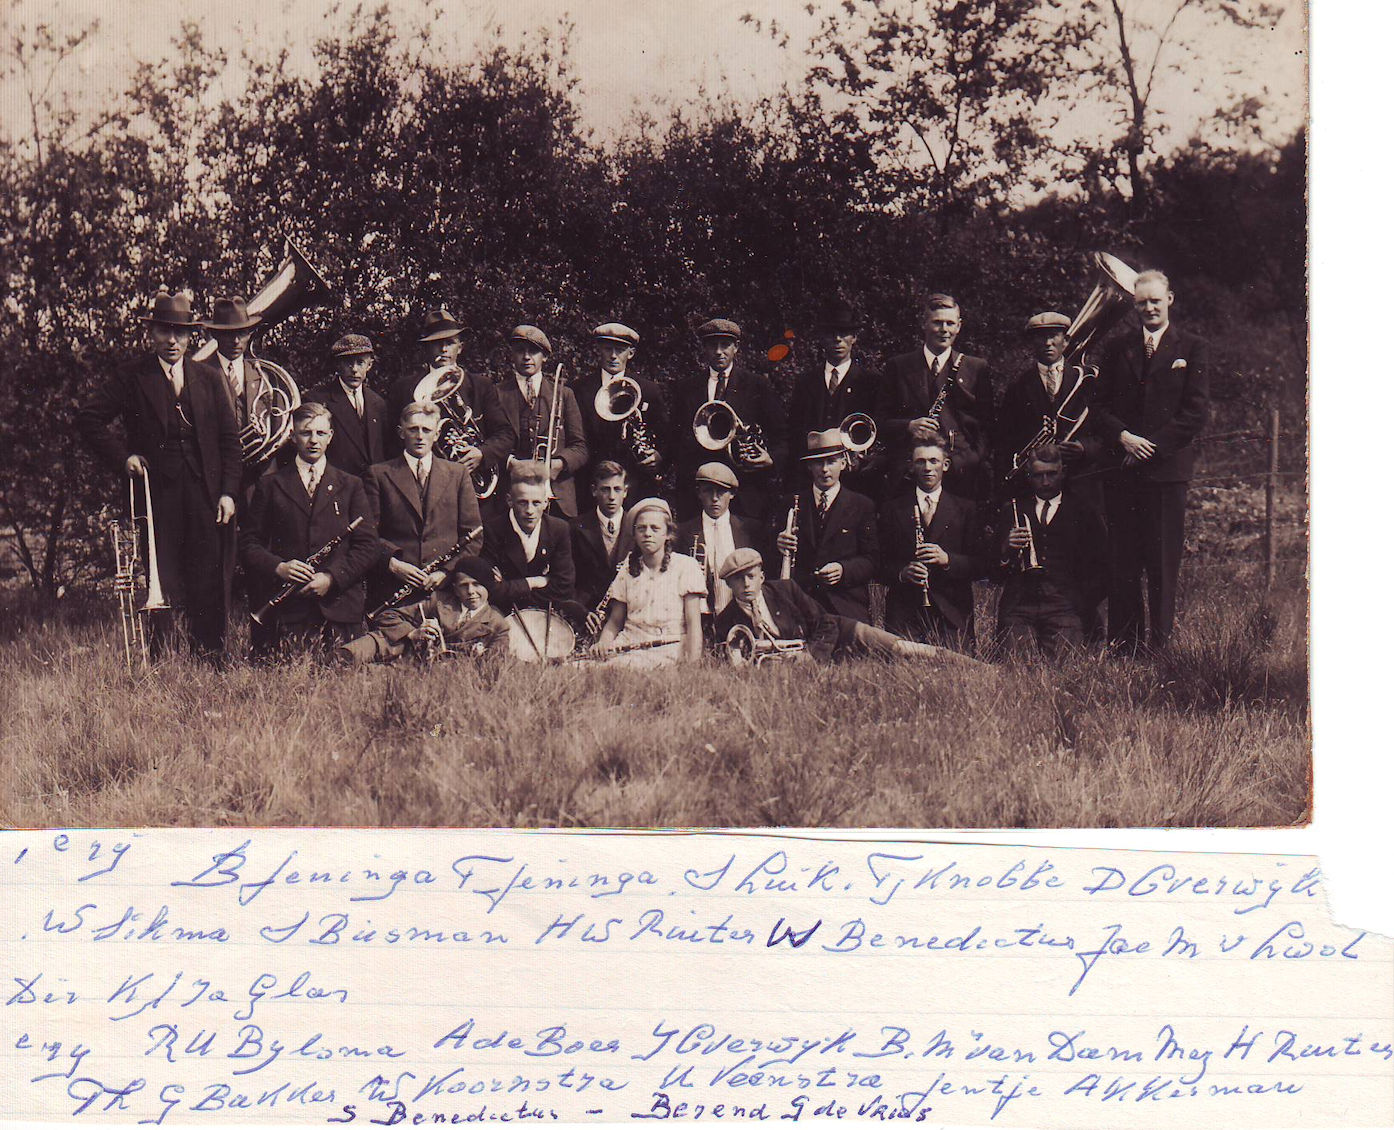 , e ry B Jeninga F Jeninga. S Luik. Tj Knobbe D Overwijk
. W Sikma S Buisman H W Ruiter W Benedictus Jac M v
Dir
e ry R U Bylsma A de Boer Y Overwyk B. van Dam H Ruiter
Th G Bakker W Koornstra U Veenstra Jentje Akkerman
S Benedictus - Berend G de Vries